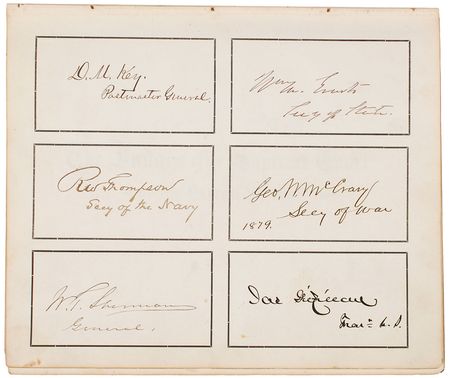 D. M. Key.
Postmaster General.
Wm M. Evarts
Secy of State.
R W Thompson
Secy of the Navy
Geo. W McCrary
Secy of War
1879.
W. T. Sherman
General.
Jas Gilfillan
U. S.